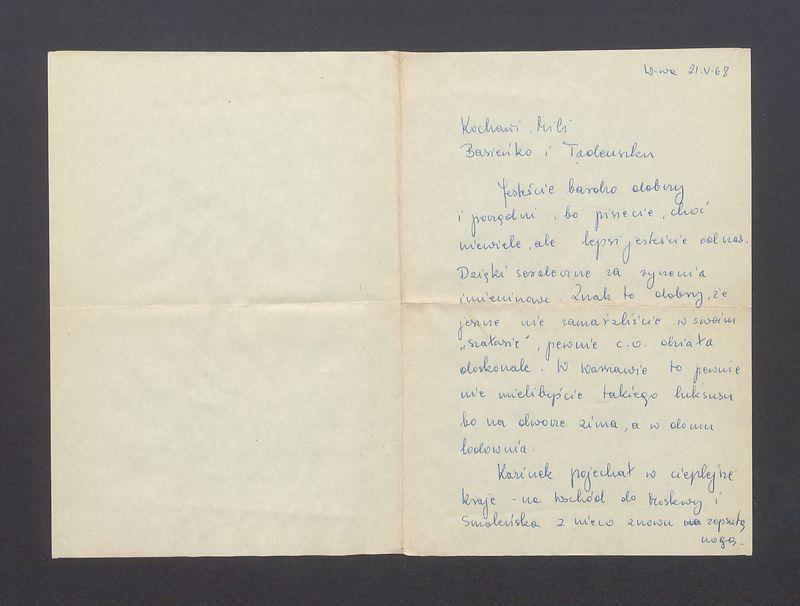 W-wa 21.V.68
Kochani, Mili
Basieńko i Tadeuszku
Jesteście bardzo dobrzy
i porządni, bo piszecie, choć
niewiele, ale lepsi jesteście od nas.
Dzięki serdeczne za życzenia
imieninowe. Znak to dobry, że
jeszcze nie zamarzliście w swoim
„szałasie", pewnie c.o. działa
doskonale. W Warszawie to pewnie
nie mielibyście takiego luksusu
bo na dworze zima, a w domu
lodownia.
Kazinek pojechał w cieplejsze
kraje - na wschód do Moskwy i
Smoleńska z nieco znowu zepsutą
nogą.